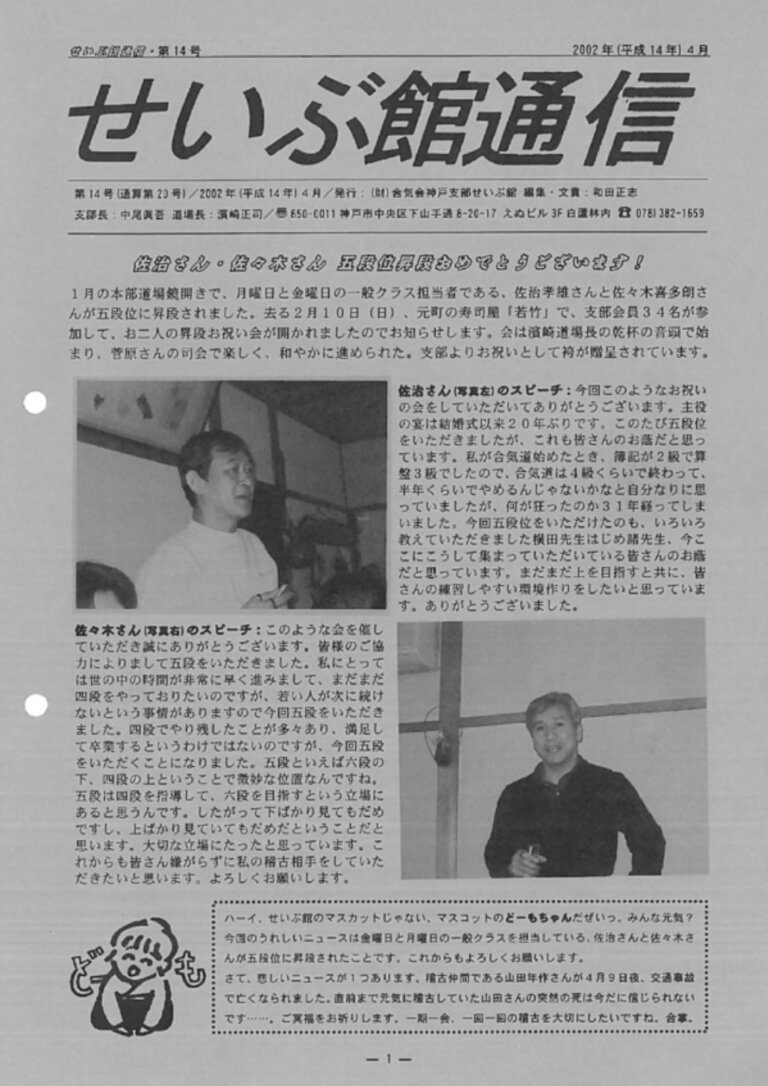 せいぶ館通信・第14号
2002年(平成14年)4月
せいぶ館通信
第14号(通算第20号)/2002年(平成14年)4月/発行:(財)合気会神戸支部せいぶ館 編集・文責:和田正志
支部長:中尾眞吾 道場長:濱崎正司/〠650-0011 神戸市中央区下山手通8-20-17 えぬビル3F 白鷹林内 ☎ 078)382-1659
佐治さん・佐々木さん 五段位昇段おめでとうございます!
1月の本部道場鏡開きで、月曜日と金曜日の一般クラス担当者である、佐治孝雄さんと佐々木喜多朗さ
んが五段位に昇段されました。去る2月10日(日)、元町の寿司屋「若竹」で、支部会員34名が参
加して、お二人の昇段お祝い会が開かれましたのでお知らせします。会は濱崎道場長の乾杯の音頭で始
まり、菅原さんの司会で楽しく、和やかに進められた。支部よりお祝いとして袴が贈呈されています。
佐治さん(写真左)のスピーチ:今回このようなお祝い
の会をしていただいてありがとうございます。主役
の宴は結婚式以来20年ぶりです。このたび五段位
をいただきましたが、これも皆さんのお蔭だと思っ
ています。私が合気道始めたとき、簿記が2級で算
盤3級でしたので、合気道は4級くらいで終わって、
半年くらいでやめるんじゃないかなと自分なりに思
っていましたが、何が狂ったのか31年経ってしま
いました。今回五段位をいただけたのも、いろいろ
教えていただきました横田先生はじめ諸先生、今こ
こにこうして集まっていただいている皆さんのお蔭
だと思っています。まだまだ上を目指すと共に、皆
さんの練習しやすい環境作りをしたいと思っていま
す。ありがとうございました。
佐々木さん(写真右)のスピーチ:このような会を催し
ていただき誠にありがとうございます。皆様のご協
力によりまして五段をいただきました。私にとって
は世の中の時間が非常に早く進みまして、まだまだ
四段をやっておりたいのですが、若い人が次に続け
ないという事情がありますので今回五段をいただき
ました。四段でやり残したことが多々あり、満足し
て卒業するというわけではないのですが、今回五段
をいただくことになりました。五段といえば六段の
下、四段の上ということで微妙な位置なんですね。
五段は四段を指導して、六段を目指すという立場に
あると思うんです。したがって下ばかり見てもだめ
ですし、上ばかり見ていてもだめだということだと
思います。大切な立場にたったと思っています。こ
れからも皆さん嫌がらずに私の稽古相手をしていた
だきたいと思います。よろしくお願いします。
どーも
ハーイ、せいぶ館のマスカットじゃない、マスコットのどーもちゃんだぜいっ。みんな元気?
今回のうれしいニュースは金曜日と月曜日の一般クラスを担当している、佐治さんと佐々木さ
んが五段位に昇段されたことです。これからもよろしくお願いします。
さて、悲しいニュースが1つあります。稽古仲間である山田年作さんが4月9日夜、交通事故
で亡くなられました。直前まで元気に稽古していた山田さんの突然の死は今だに信じられない
です……。ご冥福をお祈りします。一期一会、一回一回の稽古を大切にしたいですね。合掌。
— 1 —